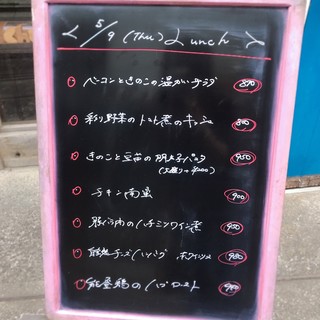 5/9 (Thu) Lunch
ベーコンときのこの温かいサラダ 850
彩り野菜のトマト煮のキッシュ 800
きのこと豆苗の明太子パスタ 950
チキン南蛮 900
豚バラ肉のハチミツワイン煮 950
チーズハンバーグ
能登鶏のハーブロースト